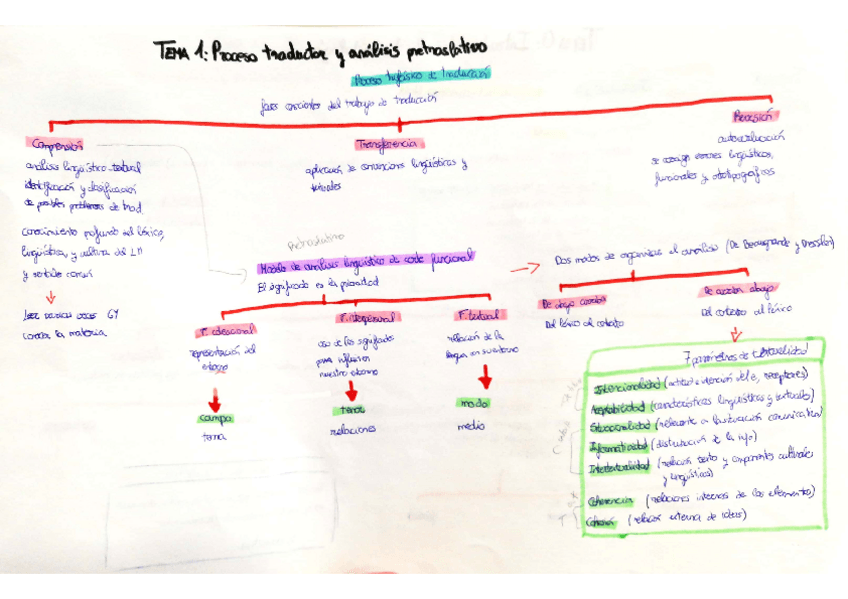 TEMA 1: Proceso traductor y análisis pretraslativo
Proceso trifásico de traducción
fases conscientes del trabajo de traducción
Comprensión
análisis lingüístico-textual
identificación y clasificación
de posibles problemas de trad.
conocimiento profundo del léxico,
lingüística, y cultura del LM
y sentido común
leer varias veces
conocer la materia
Transferencia
aplicación de convenciones lingüísticas y
textuales
Revisión
autoevaluación
se corrigen errores lingüísticos,
funcionales y ortotipográficos
Pretraslativo
Modelo de análisis lingüístico de corte funcional
El significado es la prioridad
F. ideacional
representación del
entorno
campo
tema
F. interpersonal
uso de los significados
para influir en
nuestro entorno
tenor
relaciones
F. textual
relación de la
lengua en su entorno
modo
medio
Dos modos de organizar el análisis (De Beaugrande y Dressler)
De abajo arriba
Del léxico al contexto
De arriba abajo
Del contexto al léxico
7 parámetros de textualidad
Intencionalidad (actitud e intención del e, receptores)
Aceptabilidad (características lingüísticas y textuales)
Situacionalidad (relevante a la situación comunicativa)
Informatividad (distribución de la info)
Intertextualidad (relación texto y componentes culturales
y lingüísticos)
Coherencia (relaciones internas de los elementos)
Cohesión (relación externa de ideas)